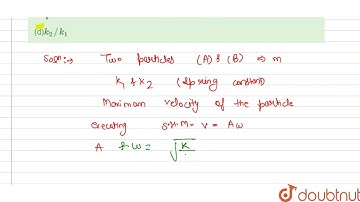 (d)k₂/k₁
Soln:→ Two particles (A) & (B) ⇒ m
k₁ & k₂ (spring constant)
Maximum velocity of the particle
executing S.H.M- V = Aω
A & ω = √k
doubtnut